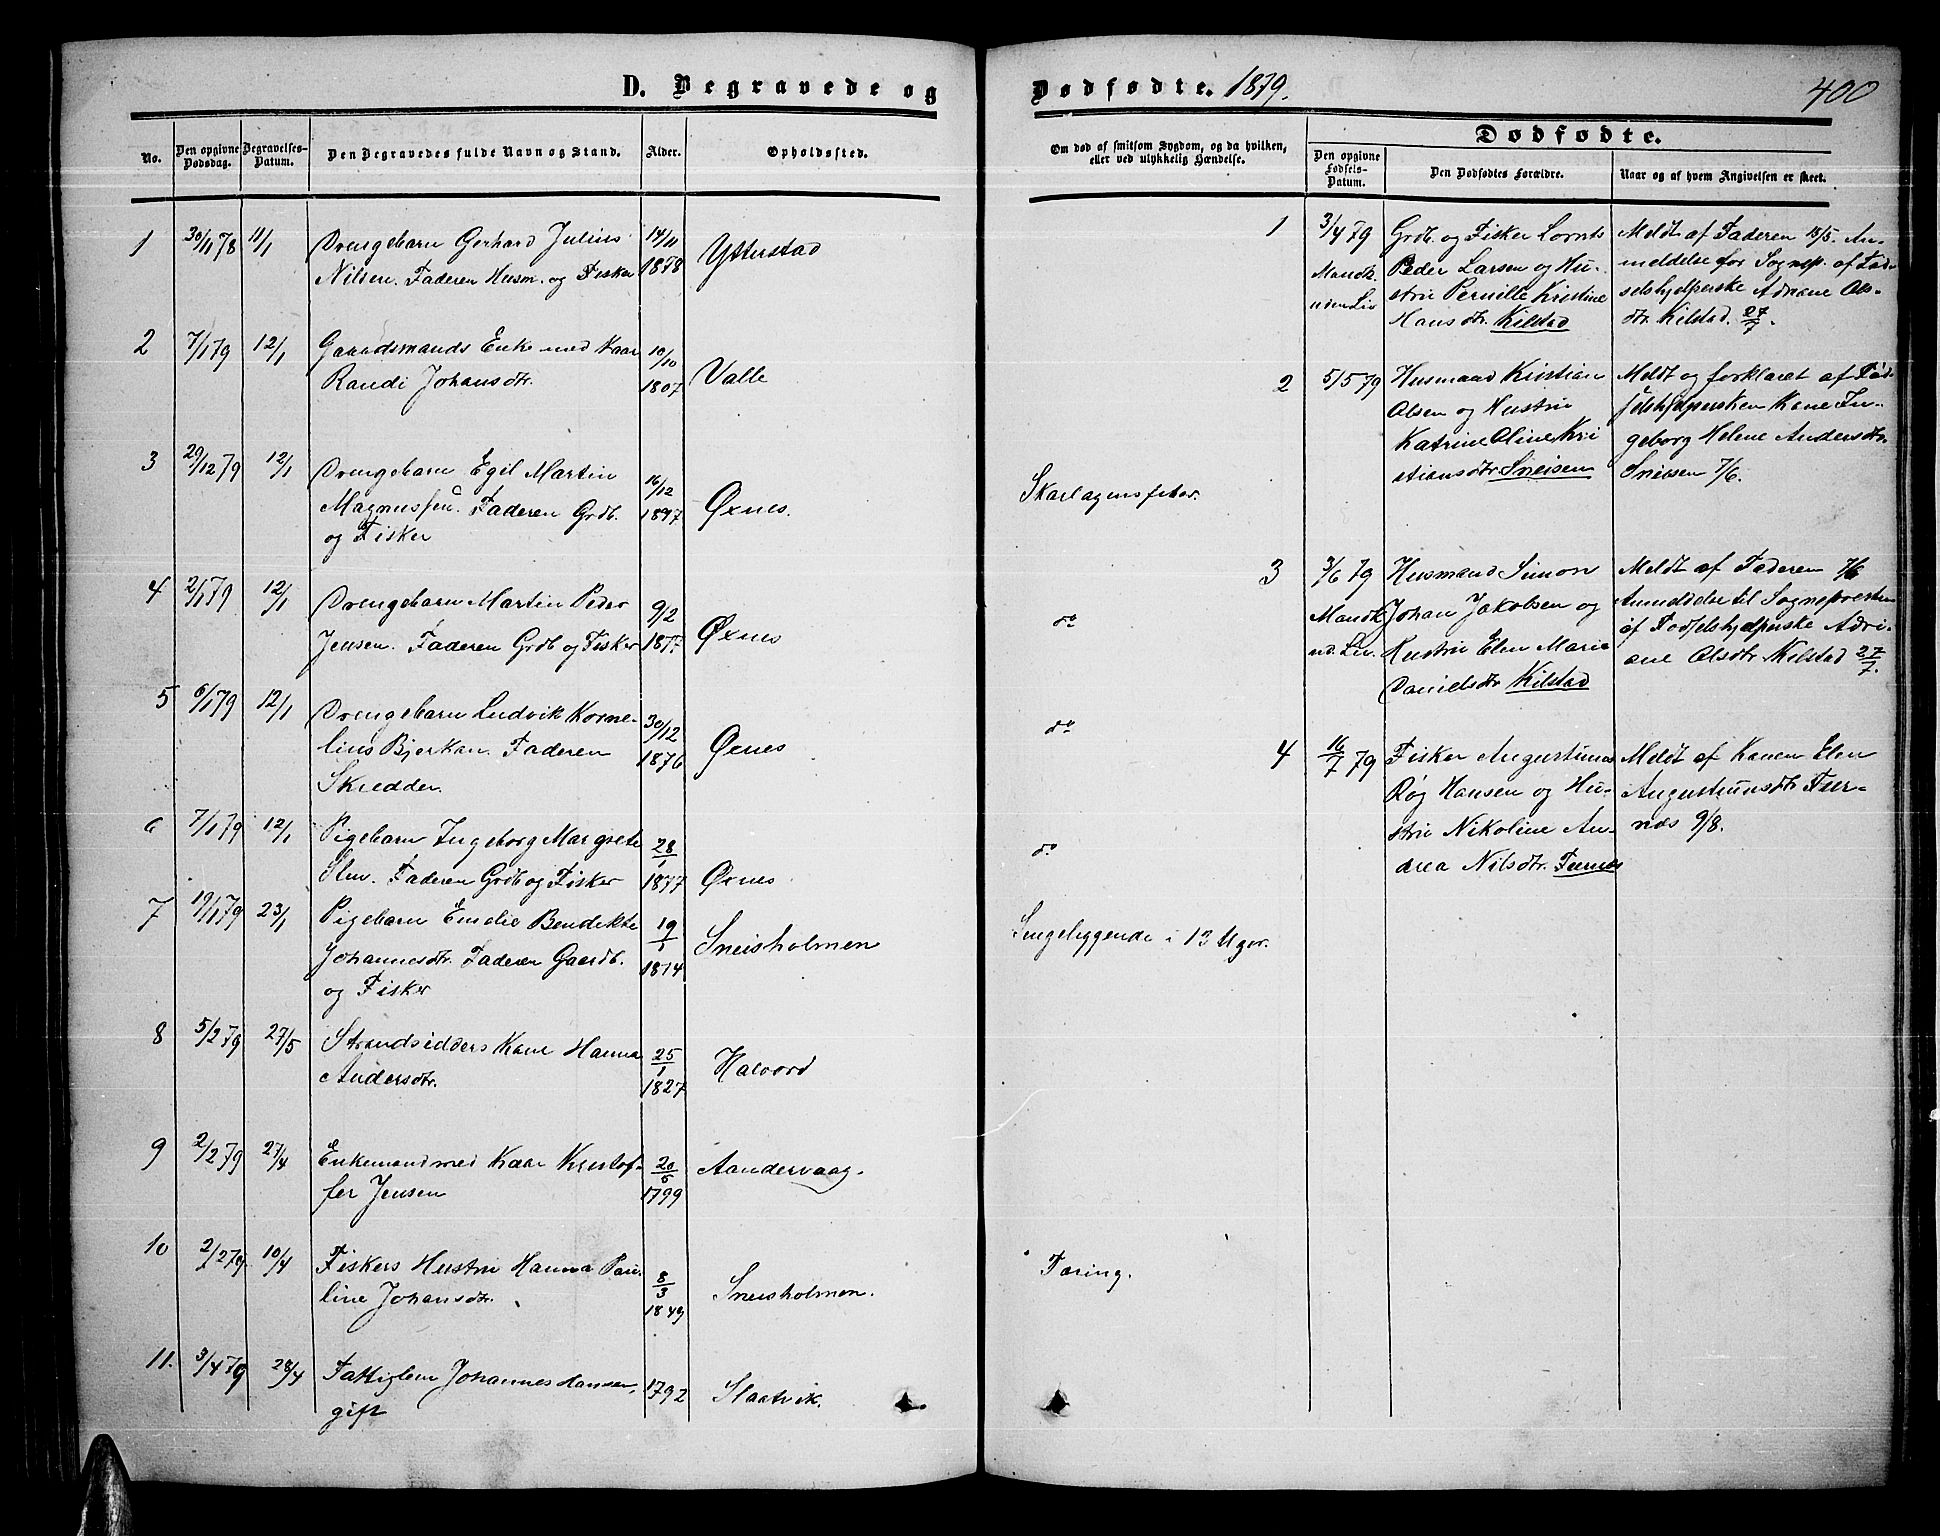 D. Begravede og
Dødfødte. 1879.
400
No.
Den opgivne Dødsdag.
Begravelses-Datum.
Den Begravedes fulde Navn og Stand.
Alder.
Opholdssted.
1 30/11 78 11/1 Drengebarn Gerhard Julius 14/11
Nilsen. Faderen Husm. og Fisker 1878 Ytterstad
2 7/1 79 12/1 Gaardsmands Enke med Kaar 10/10
Randi Johansdtr. 1807 Valle
3 29/12 79 12/1 Drengebarn Egil Martin 16/12
Magnussen. Faderen Grdb. 1877 Øxnes.
og Fisker
4 2/1 79 12/1 Drengebarn Martin Peder 9/2
Jensen. Faderen Grdb og Fisker 1877 Øxnes
5 6/1 79 12/1 Drengebarn Ludvik Korne- 30/12
lius Bjerkan. Faderen 1876 Øxnes
Skredder.
6 7/1 79 12/1 Pigebarn Ingeborg Margrete 28/1
Faderen Grdb og Fisker 1877 Øxnes
7 19/1 79 23/1 Pigebarn Emelie Bendikte 19/1
Johannesdtr. Faderen Gaardb. 1874 Sneisholmen
og Fisker
8 5/2 79 27/5 Strandsidders Kone Hanna 25/1
Andersdtr. 1827
9 2/2 79 27/4 Enkemand med Kaar Kristof- 20/5
fer Jensen 1799 Aandervaag.
10 2/2 79 10/4 Fiskers Hustru Hanna Pau- 8/3
line Johansdtr. 1849 Sneisholmen.
11. 3/4 79 28/4 Fattiglem Johannes Hansen, 1792 Slaatvik.
gift
Om død af smitsom Sygdom, og da hvilken,
eller ved ulykkelig Hændelse.
Skarlagensfeber.
do
do
do
Sengeliggende i 13 Uger.
Tæring.
Dødfødte.
Den opgivne Fødsels-Datum.
Den Dødfødtes Forældre.
Naar og af hvem Angivelsen er skeet.
1 3/4 79 Grdb. og Fisker Lornts Meldt af Faderen 15/5. An-
Mandk. Peder Larsen og Hu- meldelse for Sognep. af Fød-
uden Liv strue Pernille Kristine selshjelperske Adriane Ols-
Hansdtr. Kilstad dtr. Kilstad. 27/7.
2 5/5 79 Husmand Kristian Meldt og forklaret af Fød-
Olsen og Hustru selshjelpersken Kone In-
Katrine Oline Kri geborg Helene Andersdtr.
stiansdtr. Sneisen Sneisen 7/6.
3 3/6 79 Husmand Simon Meldt af Faderen 7/6
Mandk Johan Jakobsen og Anmeldelse til Sognepresten
ud. Liv. Hustru Elen Marie af Fødselshjelperske Adri-
Danielsdtr Kilstad ane Olsdtr. Kilstad 27/7.
4 16/7 79 Fisker Augustinus Meldt af Konen Elen
Røg Hansen og Hu- Augustinusdtr.
strue Nikoline An- 9/8.
drea Nilsdtr.